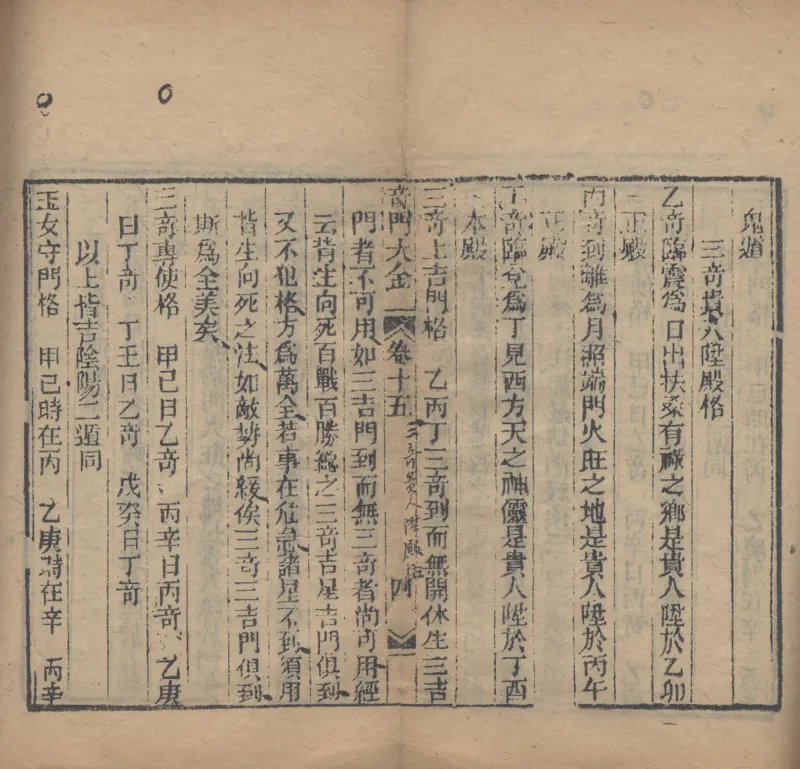 鬼遁
三竒貴人陞殿格
乙竒臨震爲日出扶桑有祿之鄉是貴人陞於乙卯
正殿
丙竒到離爲月照端門火旺之地是貴人陞於丙午
正殿
丁竒臨兌爲丁見西方天之神儷是貴人陞於丁酉
本殿
三竒上吉門格　乙丙丁三竒到而無開休生三吉
竒門大全　卷十五　三竒貴人陞殿格　四
門者不可用如三吉門到而無三竒者尚可用經
云背生向死百戰百勝總之三竒吉星吉門俱到
又不犯格方爲萬全若事在危急諸星不到須用
背生向死之法如敵勢尚緩俟三竒三吉門俱到
斯爲全美矣
三竒專使格　甲己日乙竒　丙辛日丙竒　乙庚
日丁竒　丁壬日乙竒　戊癸日丁竒
以上皆吉陰陽二遁同
玉女守門格　甲己時在丙　乙庚時在辛　丙辛